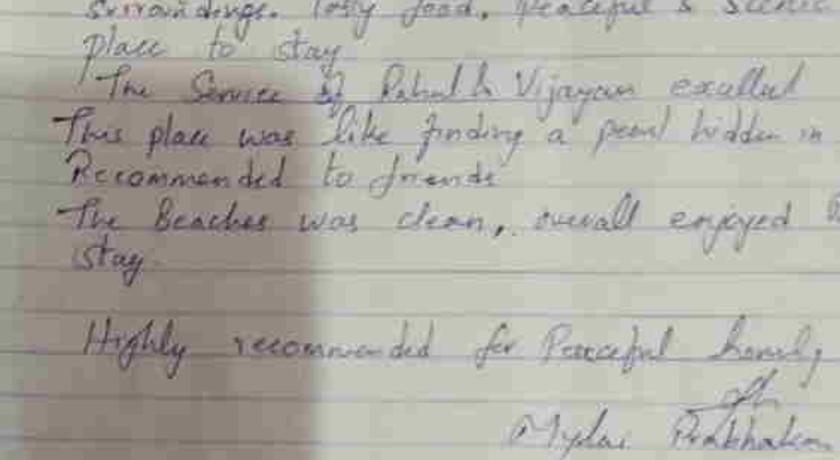 surroundings. Tasty food, peaceful & scenic
place to stay
The Service of Rahul & Vijayan excellent
This place was like finding a pearl hidden in
Recommended to friends
The Beaches was clean, overall enjoyed
stay
Highly recommended for Peaceful homely
Prabhakar